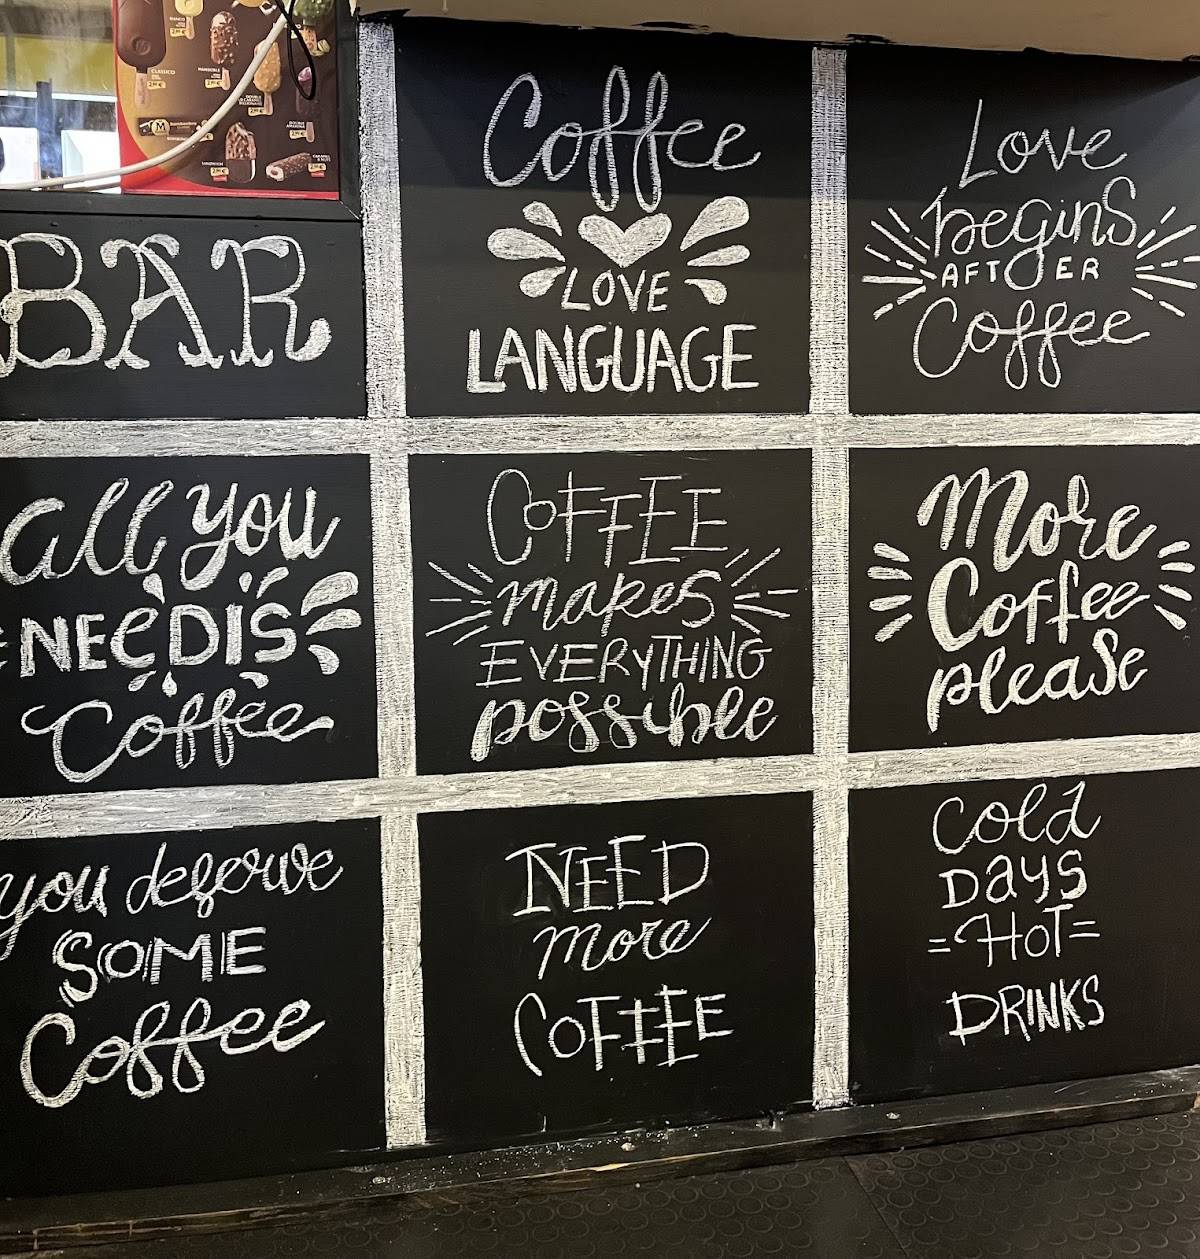 CLASSICO
SANDWICH
BAR
Coffee
LOVE
LANGUAGE
Love
begins
AFTER
Coffee
all you
NEED IS
Coffee
COFFEE
makes
EVERYTHING
possible
More
Coffee
please
you deserve
SOME
Coffee
NEED
more
COFFEE
Cold
DAYS
=HOT=
DRINKS